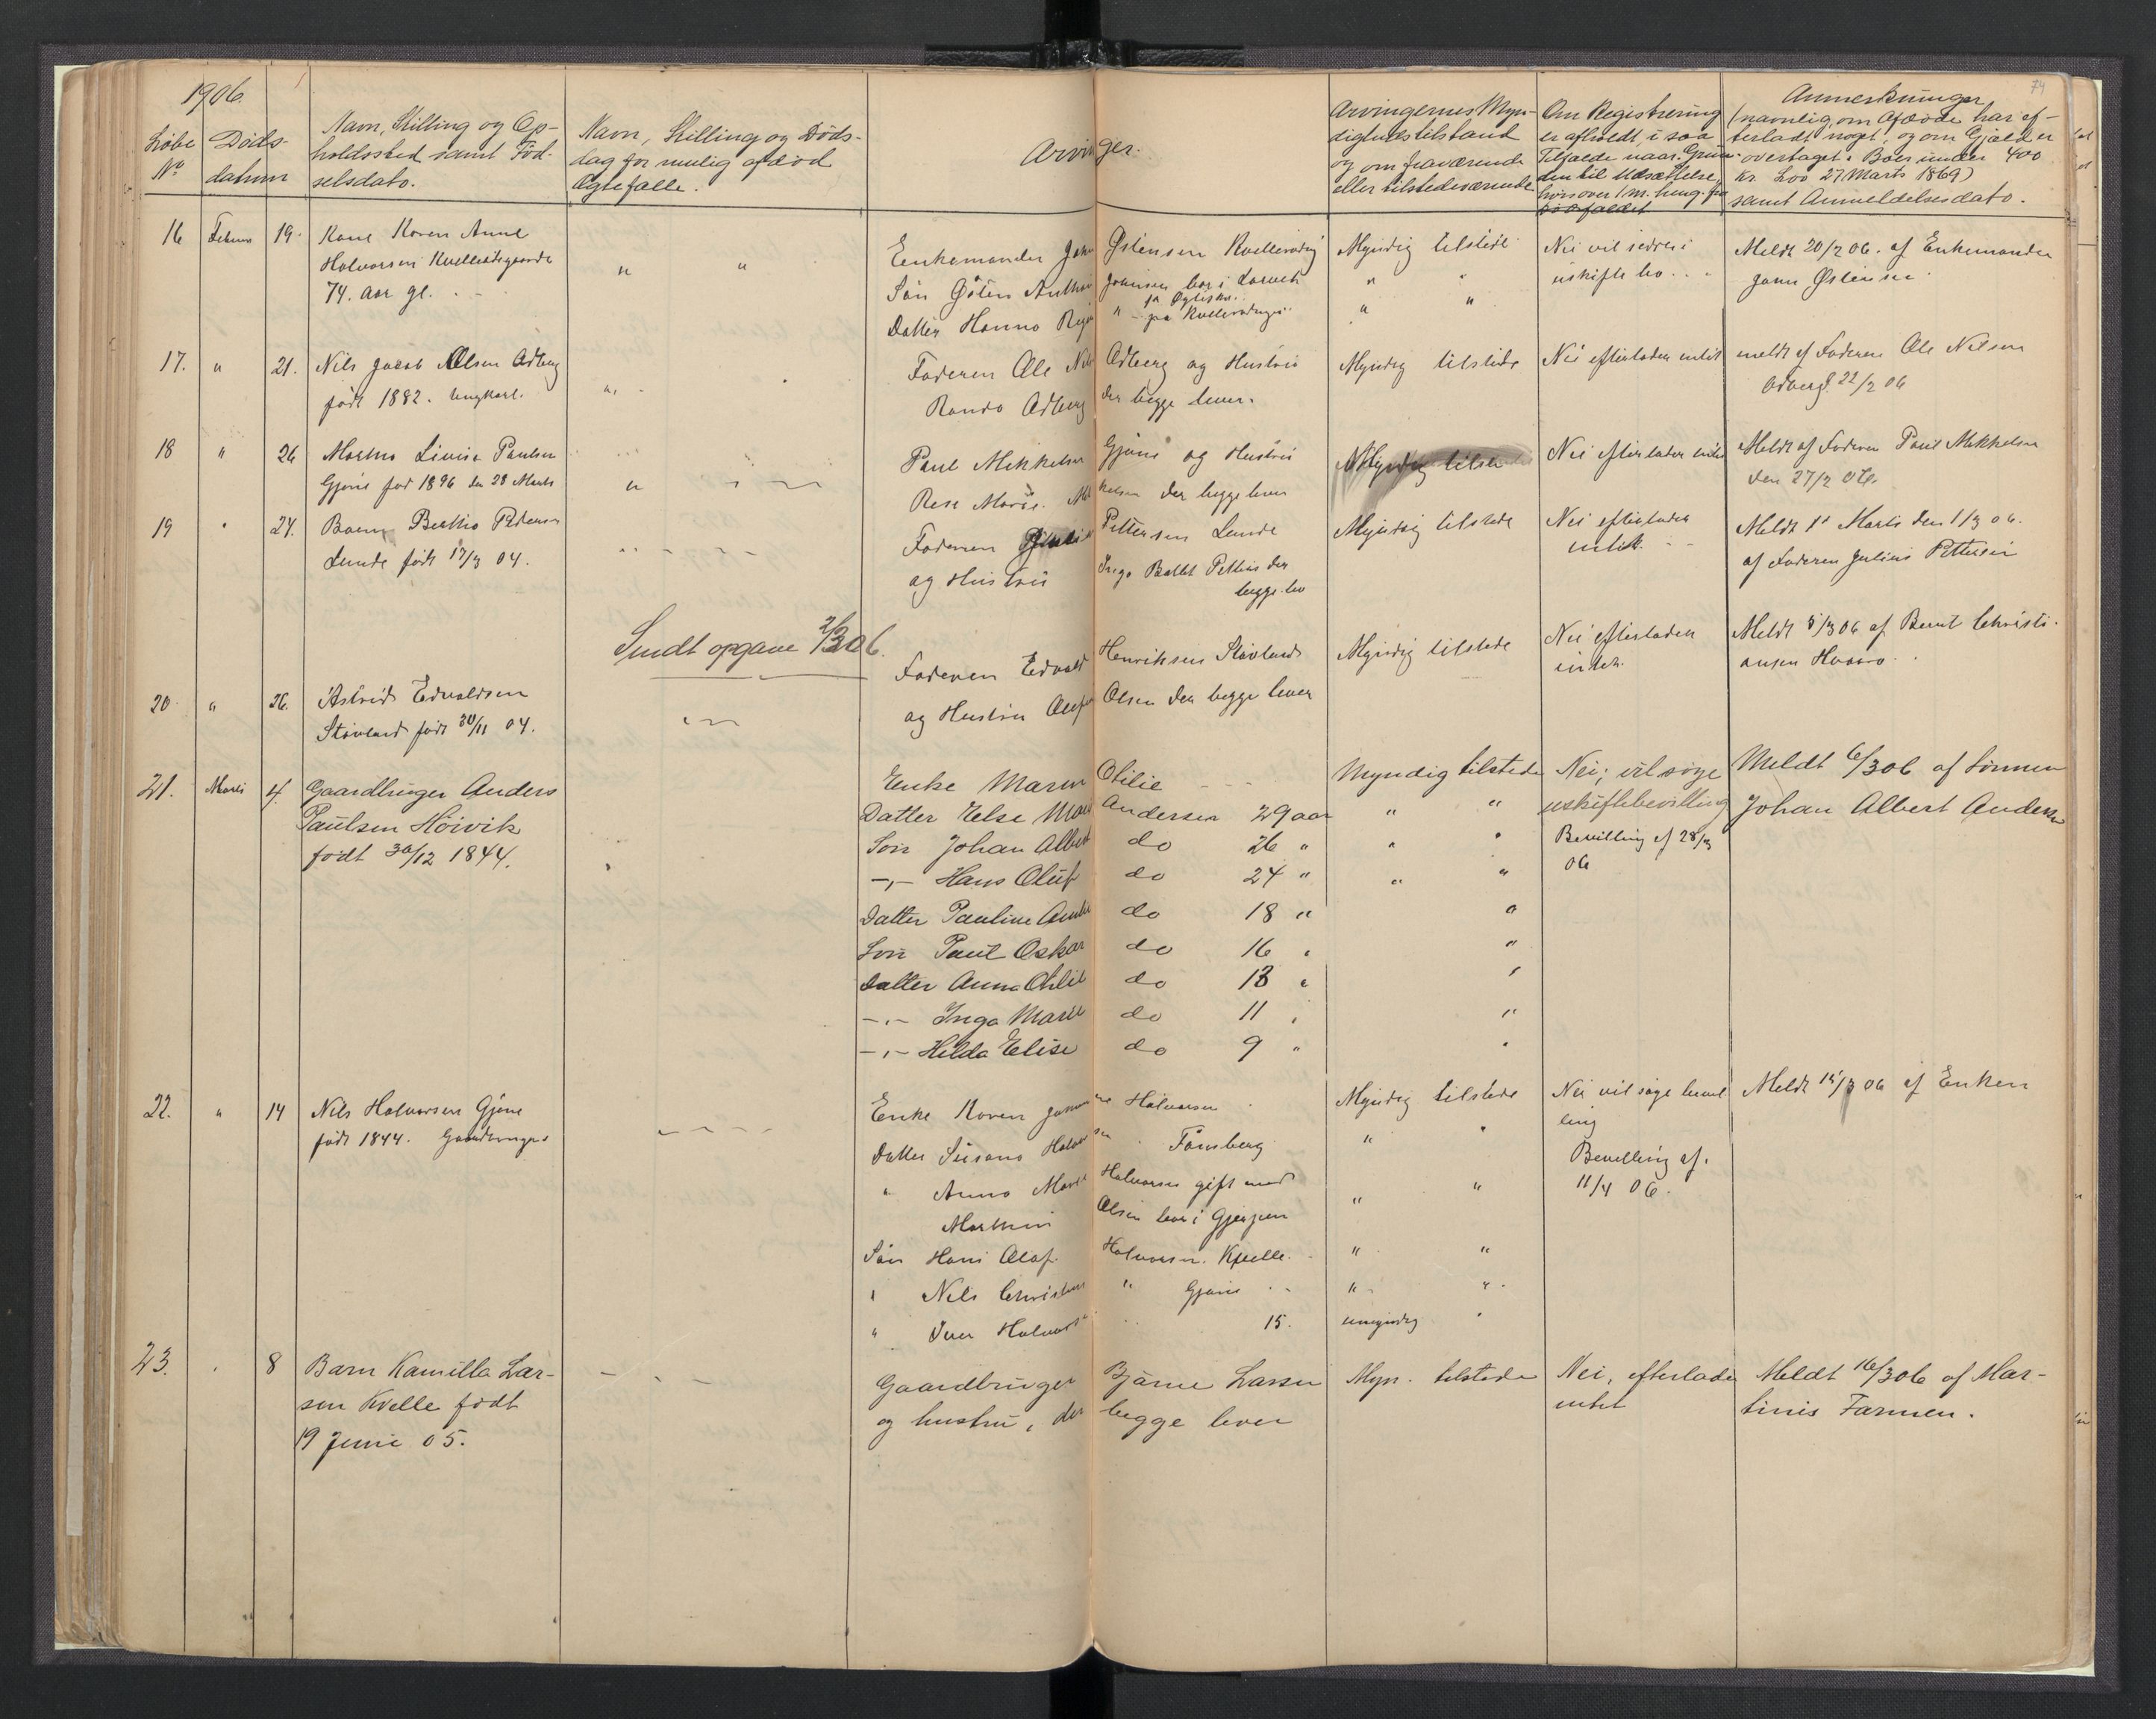 1906.
74
Løbe No
Dødsdatum
Navn, Stilling og Op-
holdssted samt Fød-
selsdato.
Navn, Stilling og Døds-
dag for mulig afdød
Ægtefælle.
Arvinger.
Arvingernes Myn-
dighedstilstand
og om fraværende
eller tilstedeværende
Om Registrering
er afholdt, i saa
Tilfælde naar. Grun-
den til Udsættelse,
hvis over 1 m. heng. fra
Dødsfaldet
Anmerkninger
(navnlig om Afdøde har ef-
terladt noget, og om Gjæld er
overtaget i Boer under 400
Kr. Lov 27 Marts 1869)
samt Anmeldelsesdato.
16 Februar 19. Kone Karen Anne
Halvorsen
74. aar gl.
" "
Enkemanden Østensen
Søn Johansen bor i Larvik
Datter Hanna " på
Myndig tilstede
" "
" "
Nei vil sidde i
uskifte bo
Meldt 20/2 06. af Enkemanden
Østensen
17. " 21. Nils Jacob Olsen Odberg
født 1882. Ungkarl.
Faderen Ole Nils Odberg og Hustru
Odberg der begge lever.
Myndig tilstede
Nei efterlader intet
meldt af Faderen Ole Nilsen
Odberg 22/2 06
18 " 26 Paulsen
Gjøne fød 1896 den 28 Marts
Paul Mikkelsen Gjøne og Hustru
Mikkelsen der begge lever
Myndig tilstede
Nei efterlader intet
Meldt af Faderen Paul Mikkelsen
den 27/2 06.
19 " 24. Barn Bertha Pettersen
Lunde født 17/3 04.
Faderen Pettersen Lunde
og Hustru der
begge lev
Myndig tilstede
Nei efterlader
intet.
Meldt 1ste Marts den 1/3 06.
af Faderen Julius Pettersen
Sendt opgave 2/3 06.
20 " 26. Astrid Edvaldsen
Støvland født 30/11 04.
Faderen Edvald Henriksen Støvland
og Hustru Olsen der begge lever
Myndig tilstede
Nei efterlader
intet.
Meldt 5/3 06 af Bernt Christi-
ansen
21. Marts 4. Gaardbruger Anders
Paulsen Høivik
født 30/12 1844.
Enke Maren Otilie
Datter Else Mari Andersen 29 aar
Søn Johan Albert do 26 "
-,- Hans Oluf do 24 "
Datter Pauline do 18 "
Søn Paul Oskar do 16 "
Datter Anna Otilie do 13 "
-,- Inga Marie do 11 "
-,- Hilda Elise do 9 "
Myndig tilstede
" "
" "
" "
"
"
"
"
"
Nei; vil søge
uskiftebevilling
Bevilling af 28/3
06
Meldt 6/3 06 af Sønnen
Johan Albert Andersen
22. " 14 Nils Halvorsen Gjøne
født 1844. Gaardbruger
Enke Karen Halvorsen
Datter Susana Halvorsen Tønsberg
" Anna Marie Halvorsen gift med
Olsen bor i Gjerpen
Søn Hans Olaf Halvorsen. Kvelle.
" Nils Christian " Gjøne
" Iver Halvorsen 15.
Myndig tilstede
" "
" "
" "
" "
umyndig "
Nei vil søge bevil
ling
Bevilling af.
11/4 06.
Meldt 15/3 06 af Enken
23. " 8 Barn Kamilla Lar-
sen Kvelle født
19 Juni 05.
Gaardbruger Bjarne Larsen
og hustru, der begge lever
Myn. tilstede
Nei, efterlader
intet
Meldt 16/3 06 af Mar-
tinis Farmen.